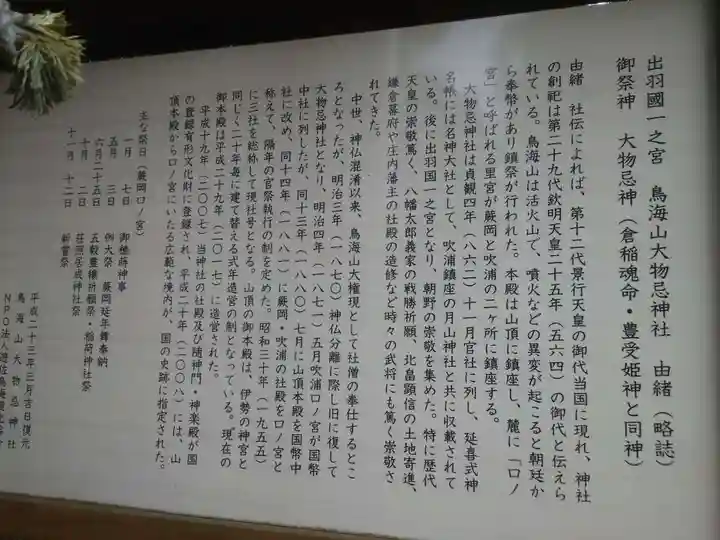 出羽國一之宮　鳥海山大物忌神社　由緒（略誌）
御祭神　大物忌神（倉稲魂命・豊受姫神と同神）
由緒　社伝によれば、第十二代景行天皇の御代当国に現れ、神社
の創祀は第二十九代欽明天皇二十五年（五六四）の御代と伝えら
れている。鳥海山は活火山で、噴火などの異変が起こると朝廷か
ら奉幣があり鎮祭が行われた。本殿は山頂に鎮座し、麓に「口ノ
宮」と呼ばれる里宮が蕨岡と吹浦の二ヶ所に鎮座する。
大物忌神社は貞観四年（八六二）十一月官社に列し、延喜式神
名帳には名神大社として、吹浦鎮座の月山神社と共に収載されて
いる。後に出羽国一之宮となり、朝野の崇敬を集めた。特に歴代
天皇の崇敬篤く、八幡太郎義家の戦勝祈願、北畠顕信の土地寄進、
鎌倉幕府や庄内藩主の社殿の造修など時々の武将にも篤く崇敬さ
れてきた。
中世、神仏混淆以来、鳥海山大権現として社僧の奉仕するとこ
ろとなったが、明治三年（一八七〇）神仏分離に際し旧に復して
大物忌神社となり、明治四年（一八七一）五月吹浦口ノ宮が国幣
中社に列したが、同十三年（一八八〇）七月に山頂本殿を国幣中
社に改め、同十四年（一八八一）に蕨岡・吹浦の社殿を口ノ宮と
称えて、隔年の官祭執行の制を定めた。昭和三十年（一九五五）
に三社を総称して現社号となる。山頂の御本殿は、伊勢の神宮と
同じく二十年毎に建て替える式年造営の制となっている。現在の
御本殿は平成二十九年（二〇一七）に造営された。
平成十九年（二〇〇七）当神社の社殿及び随神門・神楽殿が国
の登録有形文化財に登録され、平成二十年（二〇〇八）には、山
頂本殿から口ノ宮にいたる広範な境内が、国の史跡に指定された。
主な祭日（蕨岡口ノ宮）
一月　七日　御種蒔神事
五月　三日　例大祭　蕨岡延年舞奉納
六月二十五日　五穀豊穣祈願祭・稲荷神社祭
十月　二日　荘照居成神社祭
十一月　十二日　新嘗祭
平成二十三年三月吉日復元
鳥海山大物忌神社
NPO法人遊佐鳥海観光